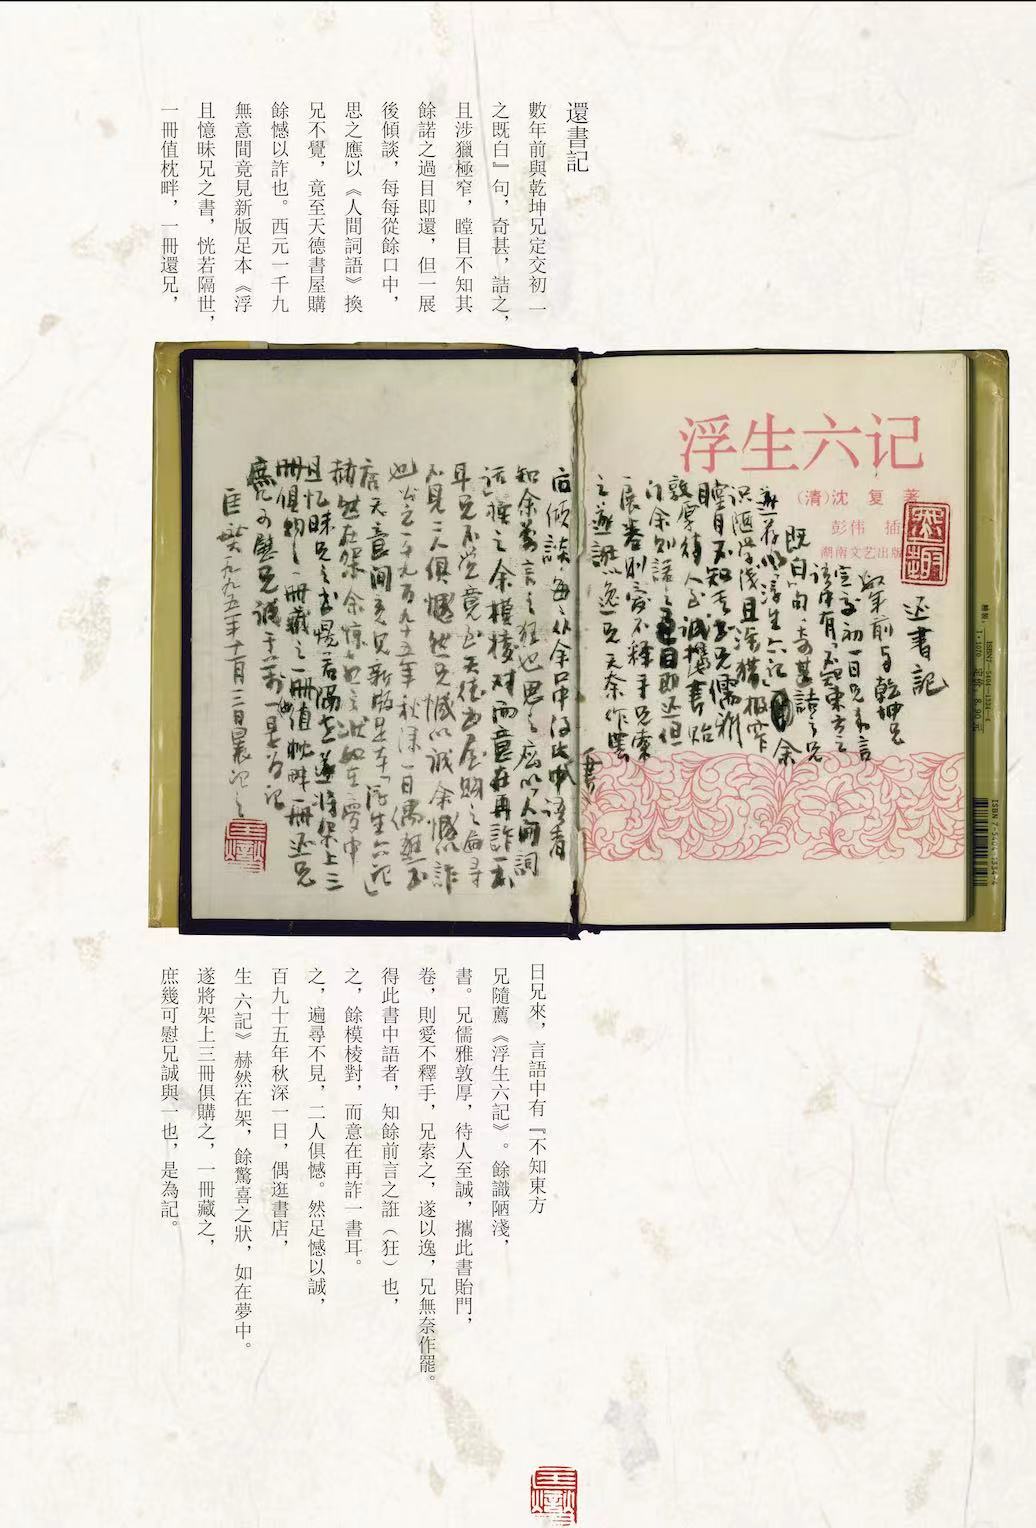 還書記
數年前與乾坤兄定交初一
日兄來，言語中有『不知東方
之既白』句，奇甚，詰之，
兄隨薦《浮生六記》。餘識陋淺，
且涉獵極窄，瞠目不知其
書。兄儒雅敦厚，待人至誠，攜此書貽門，
餘諾之過目即還，但一展
卷，則愛不釋手，兄索之，遂以逸，兄無奈作罷。
後傾談，每每從餘口中，
得此書中語者，知餘前言之誑（狂）也，
思之應以《人間詞語》換
之，餘模棱對，而意在再詐一書耳。
兄不覺，竟至天德書屋購
之，遍尋不見，二人俱憾。然足憾以誠，
餘憾以詐也。西元一千九
百九十五年秋深一日，偶逛書店，
無意間竟見新版足本《浮
生 六記》赫然在架，餘驚喜之狀，如在夢中。
且憶昧兄之書，恍若隔世，
遂將架上三冊俱購之，一冊藏之，
一冊值枕畔，一冊還兄，
庶幾可慰兄誠與一也，是為記。
浮生六记
（清）沈 复 著
彭伟 插
湖南文艺出版
还書記
數年前与乾坤兄
定交初一日兄来言
語中有「不知東方之
既白」句奇甚詰之兄
荐以浮生六记 余
识陋学浅且涉猎极窄
瞠目不知其書兄儒雅
敦厚待人至诚携書贻
门余则諾之过目即还但
展卷则爱不释手兄索
之遂誑以逸兄无奈作罢
后倾谈每每从余口中得此书中语者
知余前言之狂也思之应以人间词
话换之余模棱对而意在再詐一書
耳兄不觉竟至天德书屋购之遍寻
不見二人俱憾然兄憾以诚余憾以詐
也公元一千九百九十五年秋深一日偶逛书
店无意间竟见新版足本「浮生六记」
赫然在架余惊喜之状如在梦中
且忆昧兄之书恍若隔世遂将架上三
册俱购之一册藏之一册值枕畔一册还兄
庶几可慰兄诚于万一是为记
匡燮一九九五年十一月三日晨记之